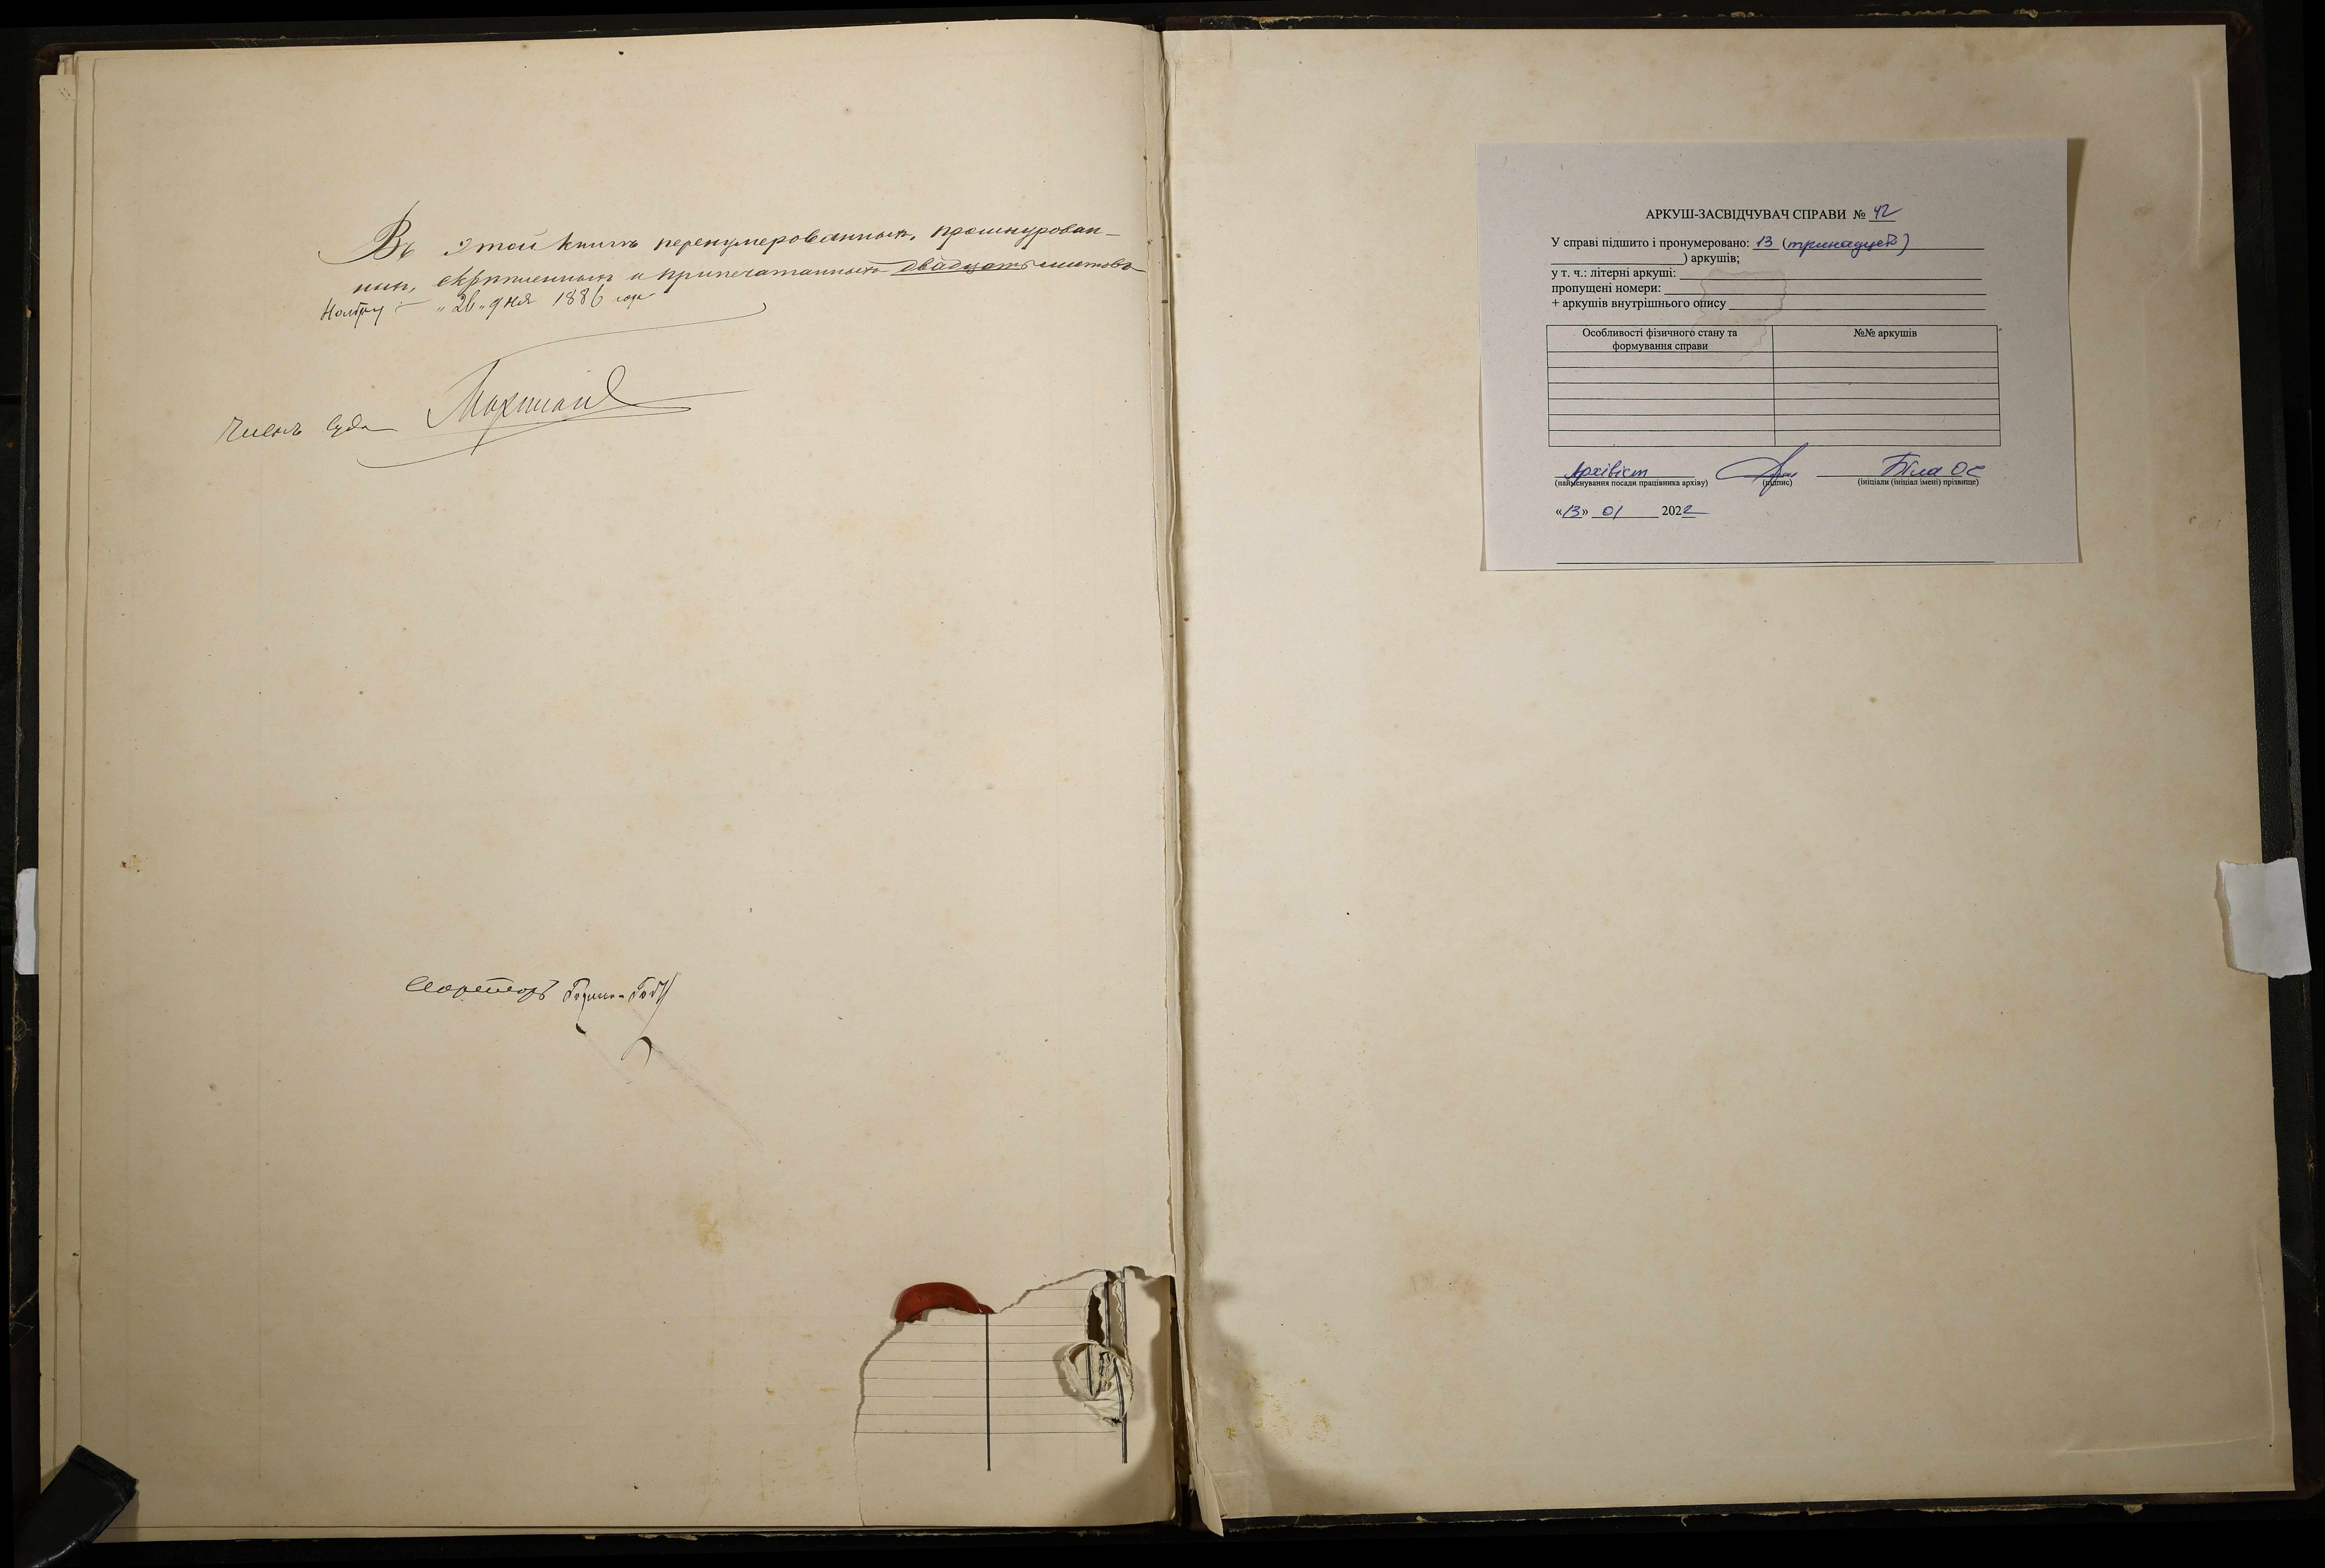 Въ этой книгѣ перенумерованныхъ, прошнурован-
ныхъ, скрѣпленныхъ и припечатанныхъ двадцать листовъ
Ноября "26" дня 1886 года
Членъ Суда
Секретарь
АРКУШ-ЗАСВІДЧУВАЧ СПРАВИ № 42
У справі підшито і пронумеровано: 13 (тринадцять)
) аркушів;
у т. ч.: літерні аркуші:
пропущені номери:
+ аркушів внутрішнього опису
Особливості фізичного стану та №№ аркушів
формування справи
Архівіст Біла ОС
(найменування посади працівника архіву) (підпис) (ініціали (ініціал імені) прізвище)
«13» 01 2022